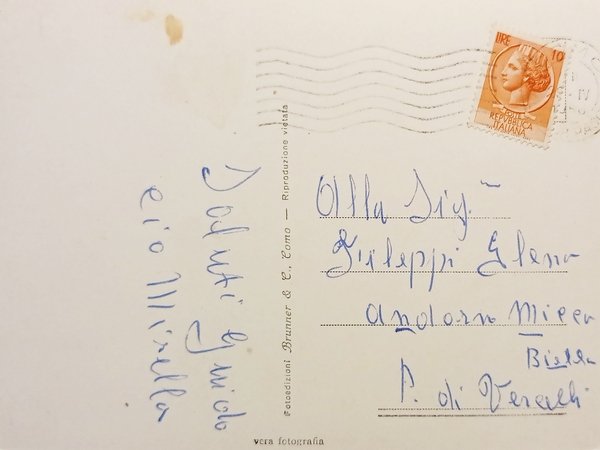 LIRE 10
POSTE
REPVBBLICA
ITALIANA
Saluti Guido
e io Mirella
Fotoedizioni Brunner & C., Como — Riproduzione vietata
Alla Sig.na
Elena
Andorno Micca
Biella
P. di Vercelli
vera fotografia